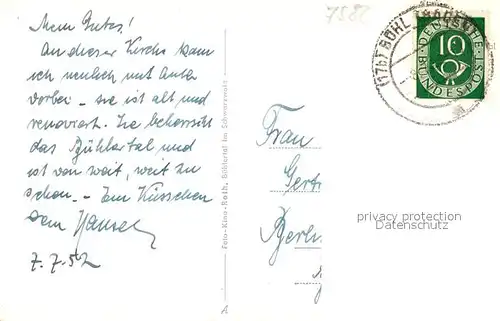 Mein Gutes!
An dieser Kirche kam
ich neulich mit Auto
vorbei - sie ist alt und
renoviert. Sie beherrscht
das Bühlertal und
ist von weit, weit zu
sehen. - Ein Küsschen
Dein Hansel
7.7.52
Foto-Kino-Roth, Bühlertal im Schwarzwald
7582
(17b) BÜHL
DEUTSCHE
BUNDESPOST
10
Frau
Gertr
Berli
privacy protection
Datenschutz